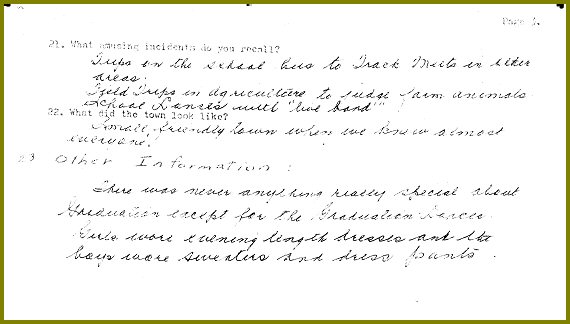 Page 4.
21. What amusing incidents do you recall?
Trips on the school bus to Track Meets in other
areas.
Field Trips in Agriculture to judge farm animals
School Dances with "live band"
22. What did the town look like?
Small, friendly town when we knew almost
everyone!
23 Other Information :
There was never anything really special about
Graduation except for the Graduation Dances.
Girls wore evening length dresses and the
boys wore sweaters and dress pants.